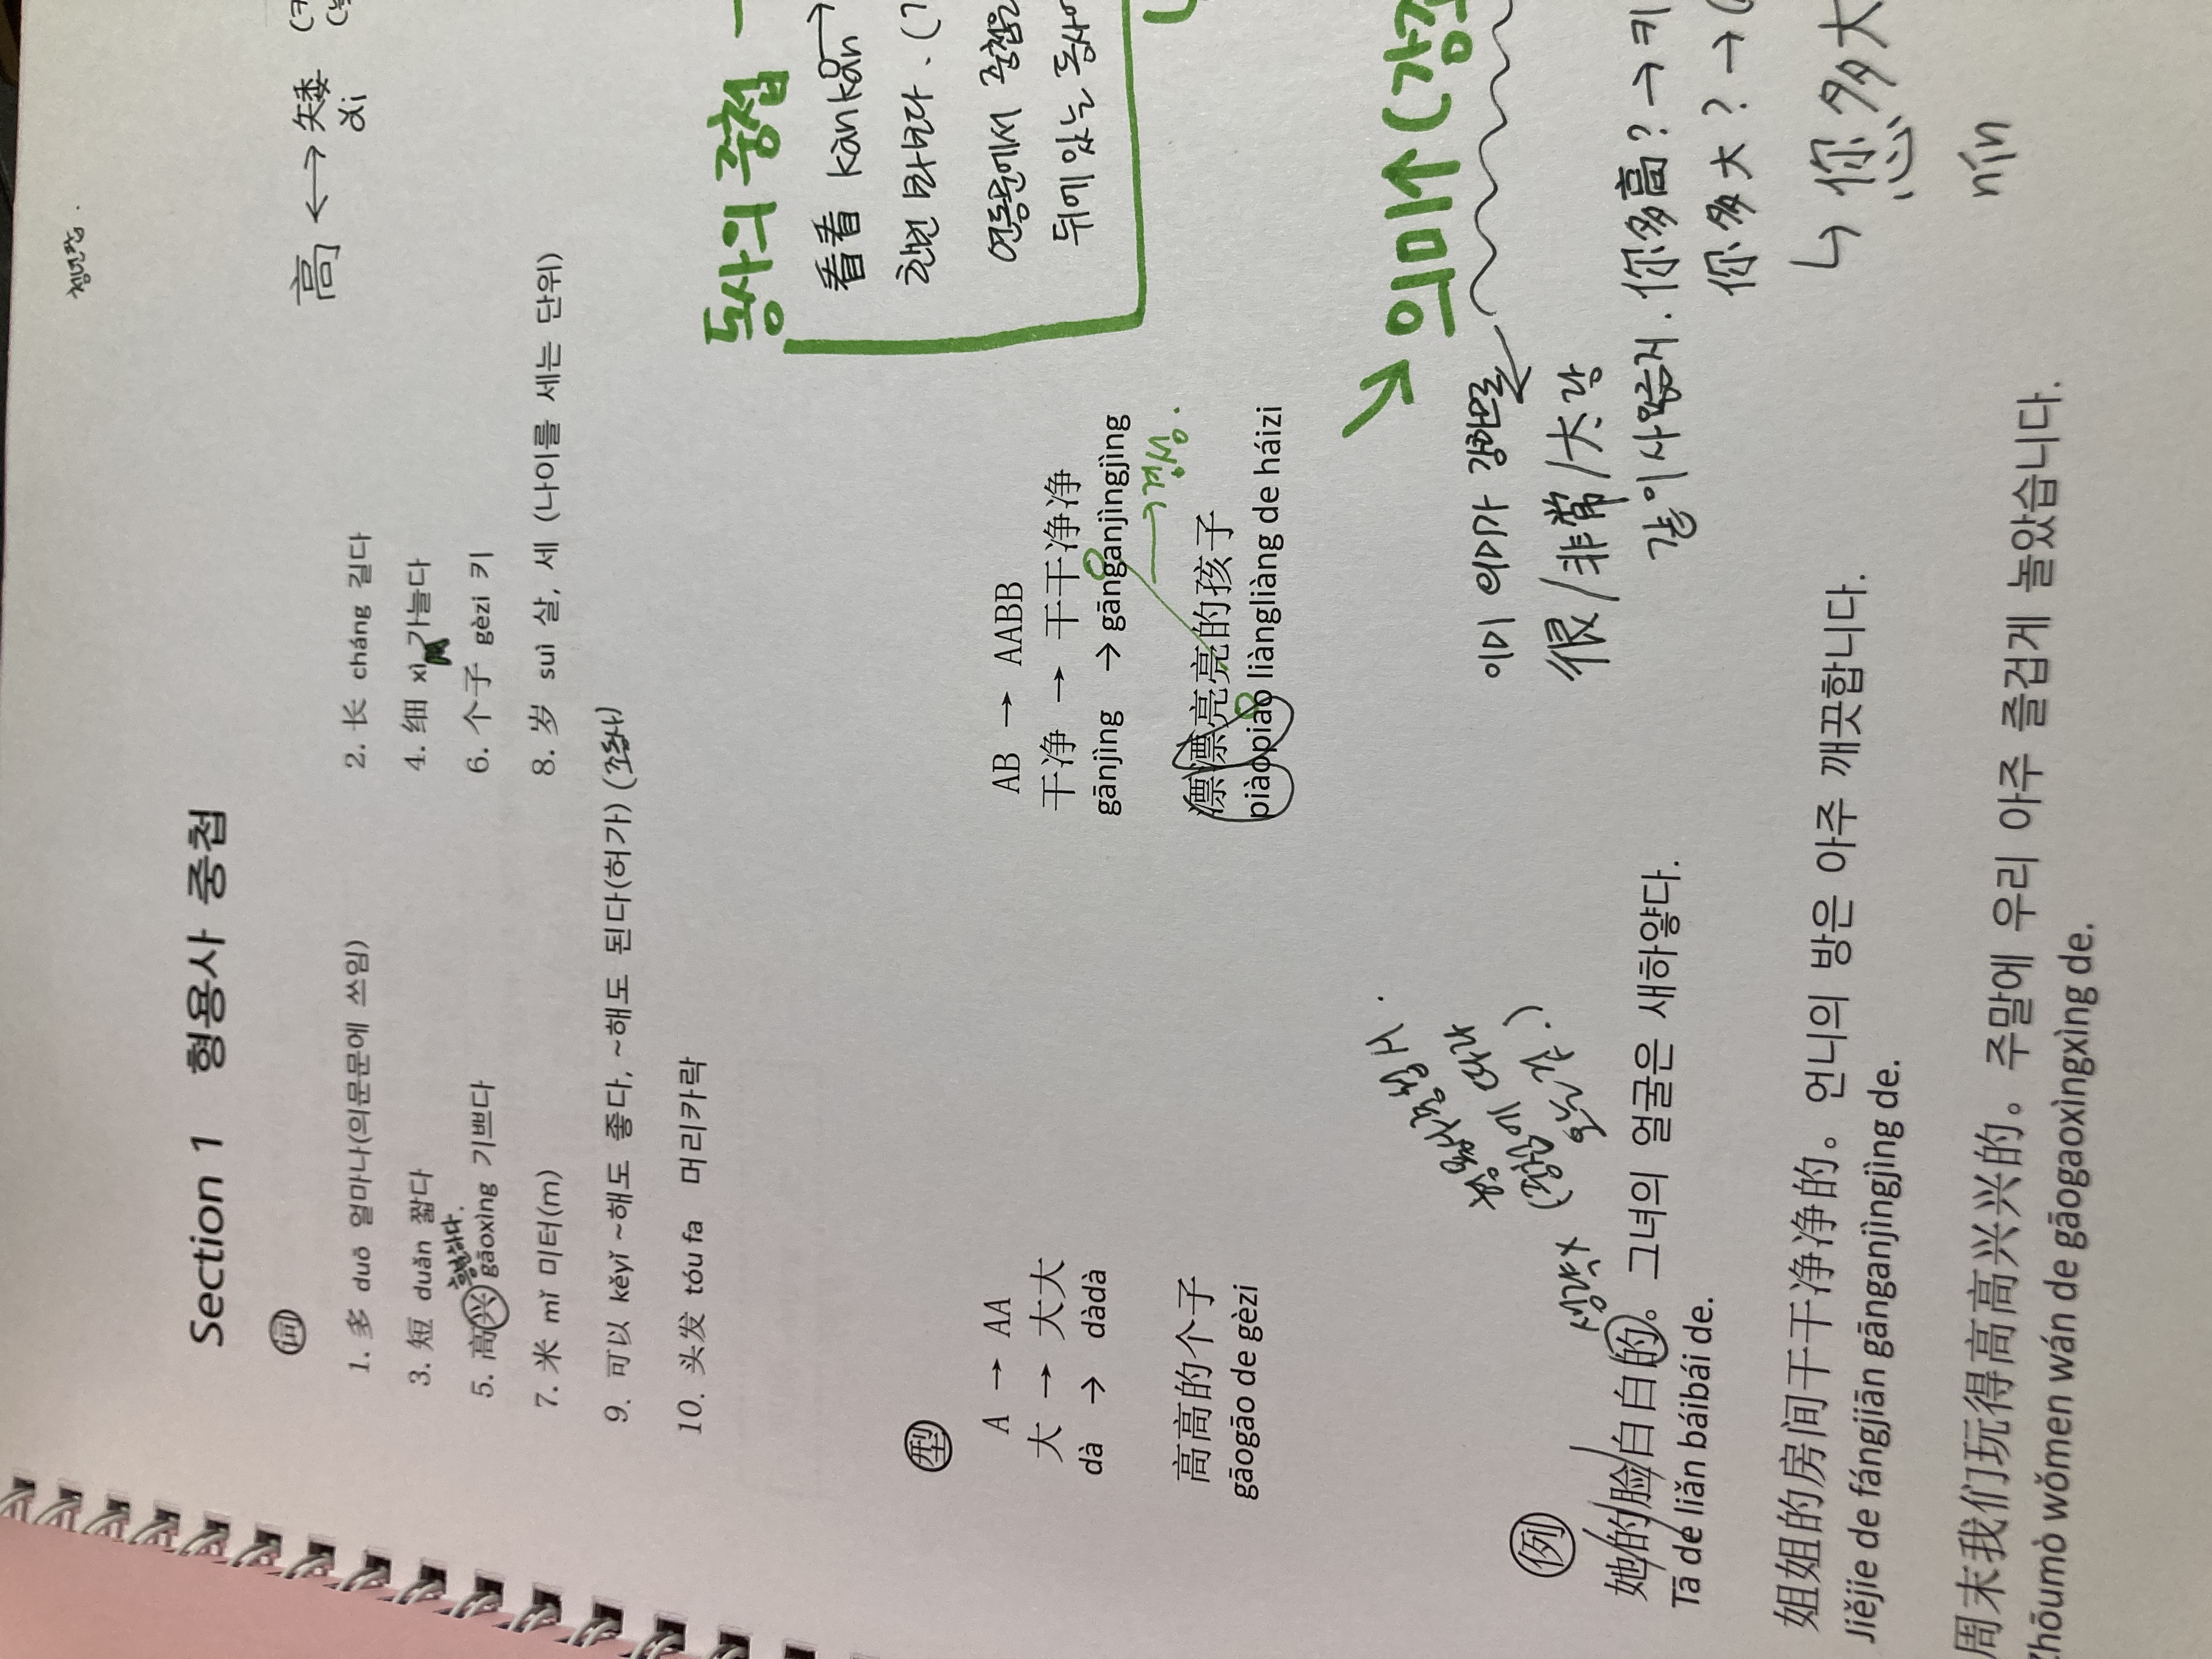 Section 1 형용사 중첩
词
高 ←→ 矮
ǎi
1. 多 duō 얼마나(의문문에 쓰임)
2. 长 cháng 길다
3. 短 duǎn 짧다
4. 细 xì 가늘다
5. 高兴 gāoxìng 기쁘다
6. 个子 gèzi 키
7. 米 mǐ 미터(m)
8. 岁 suì 살, 세 (나이를 세는 단위)
9. 可以 kěyǐ ~해도 좋다, ~해도 된다(허가) (조동사)
10. 头发 tóu fa 머리카락
동사의 중첩
看看 kànkan →
한번 봐보다.
연동문에서 중첩은
뒤에 있는 동사
型
A → AA
大 → 大大
dà → dàdà
高高的个子
gāogāo de gèzi
AB → AABB
干净 → 干干净净
gānjìng → gānganjìngjìng
경성.
漂漂亮亮的孩子
piàopiào liàngliàng de háizi
→ 의미↑ (강조
이미 의미가 강하므로
很/非常/太 랑
같이 사용x
你多高? → 키
你多大? →
↳ 您多大
nín
例
생략x
她的脸白白的。 그녀의 얼굴은 새하얗다.
Tā de liǎn báibái de.
姐姐的房间干干净净的。 언니의 방은 아주 깨끗합니다.
Jiějie de fángjiān gānganjìngjìng de.
周末我们玩得高高兴兴的。 주말에 우리 아주 즐겁게 놀았습니다.
Zhōumò wǒmen wán de gāogaoxìngxìng de.